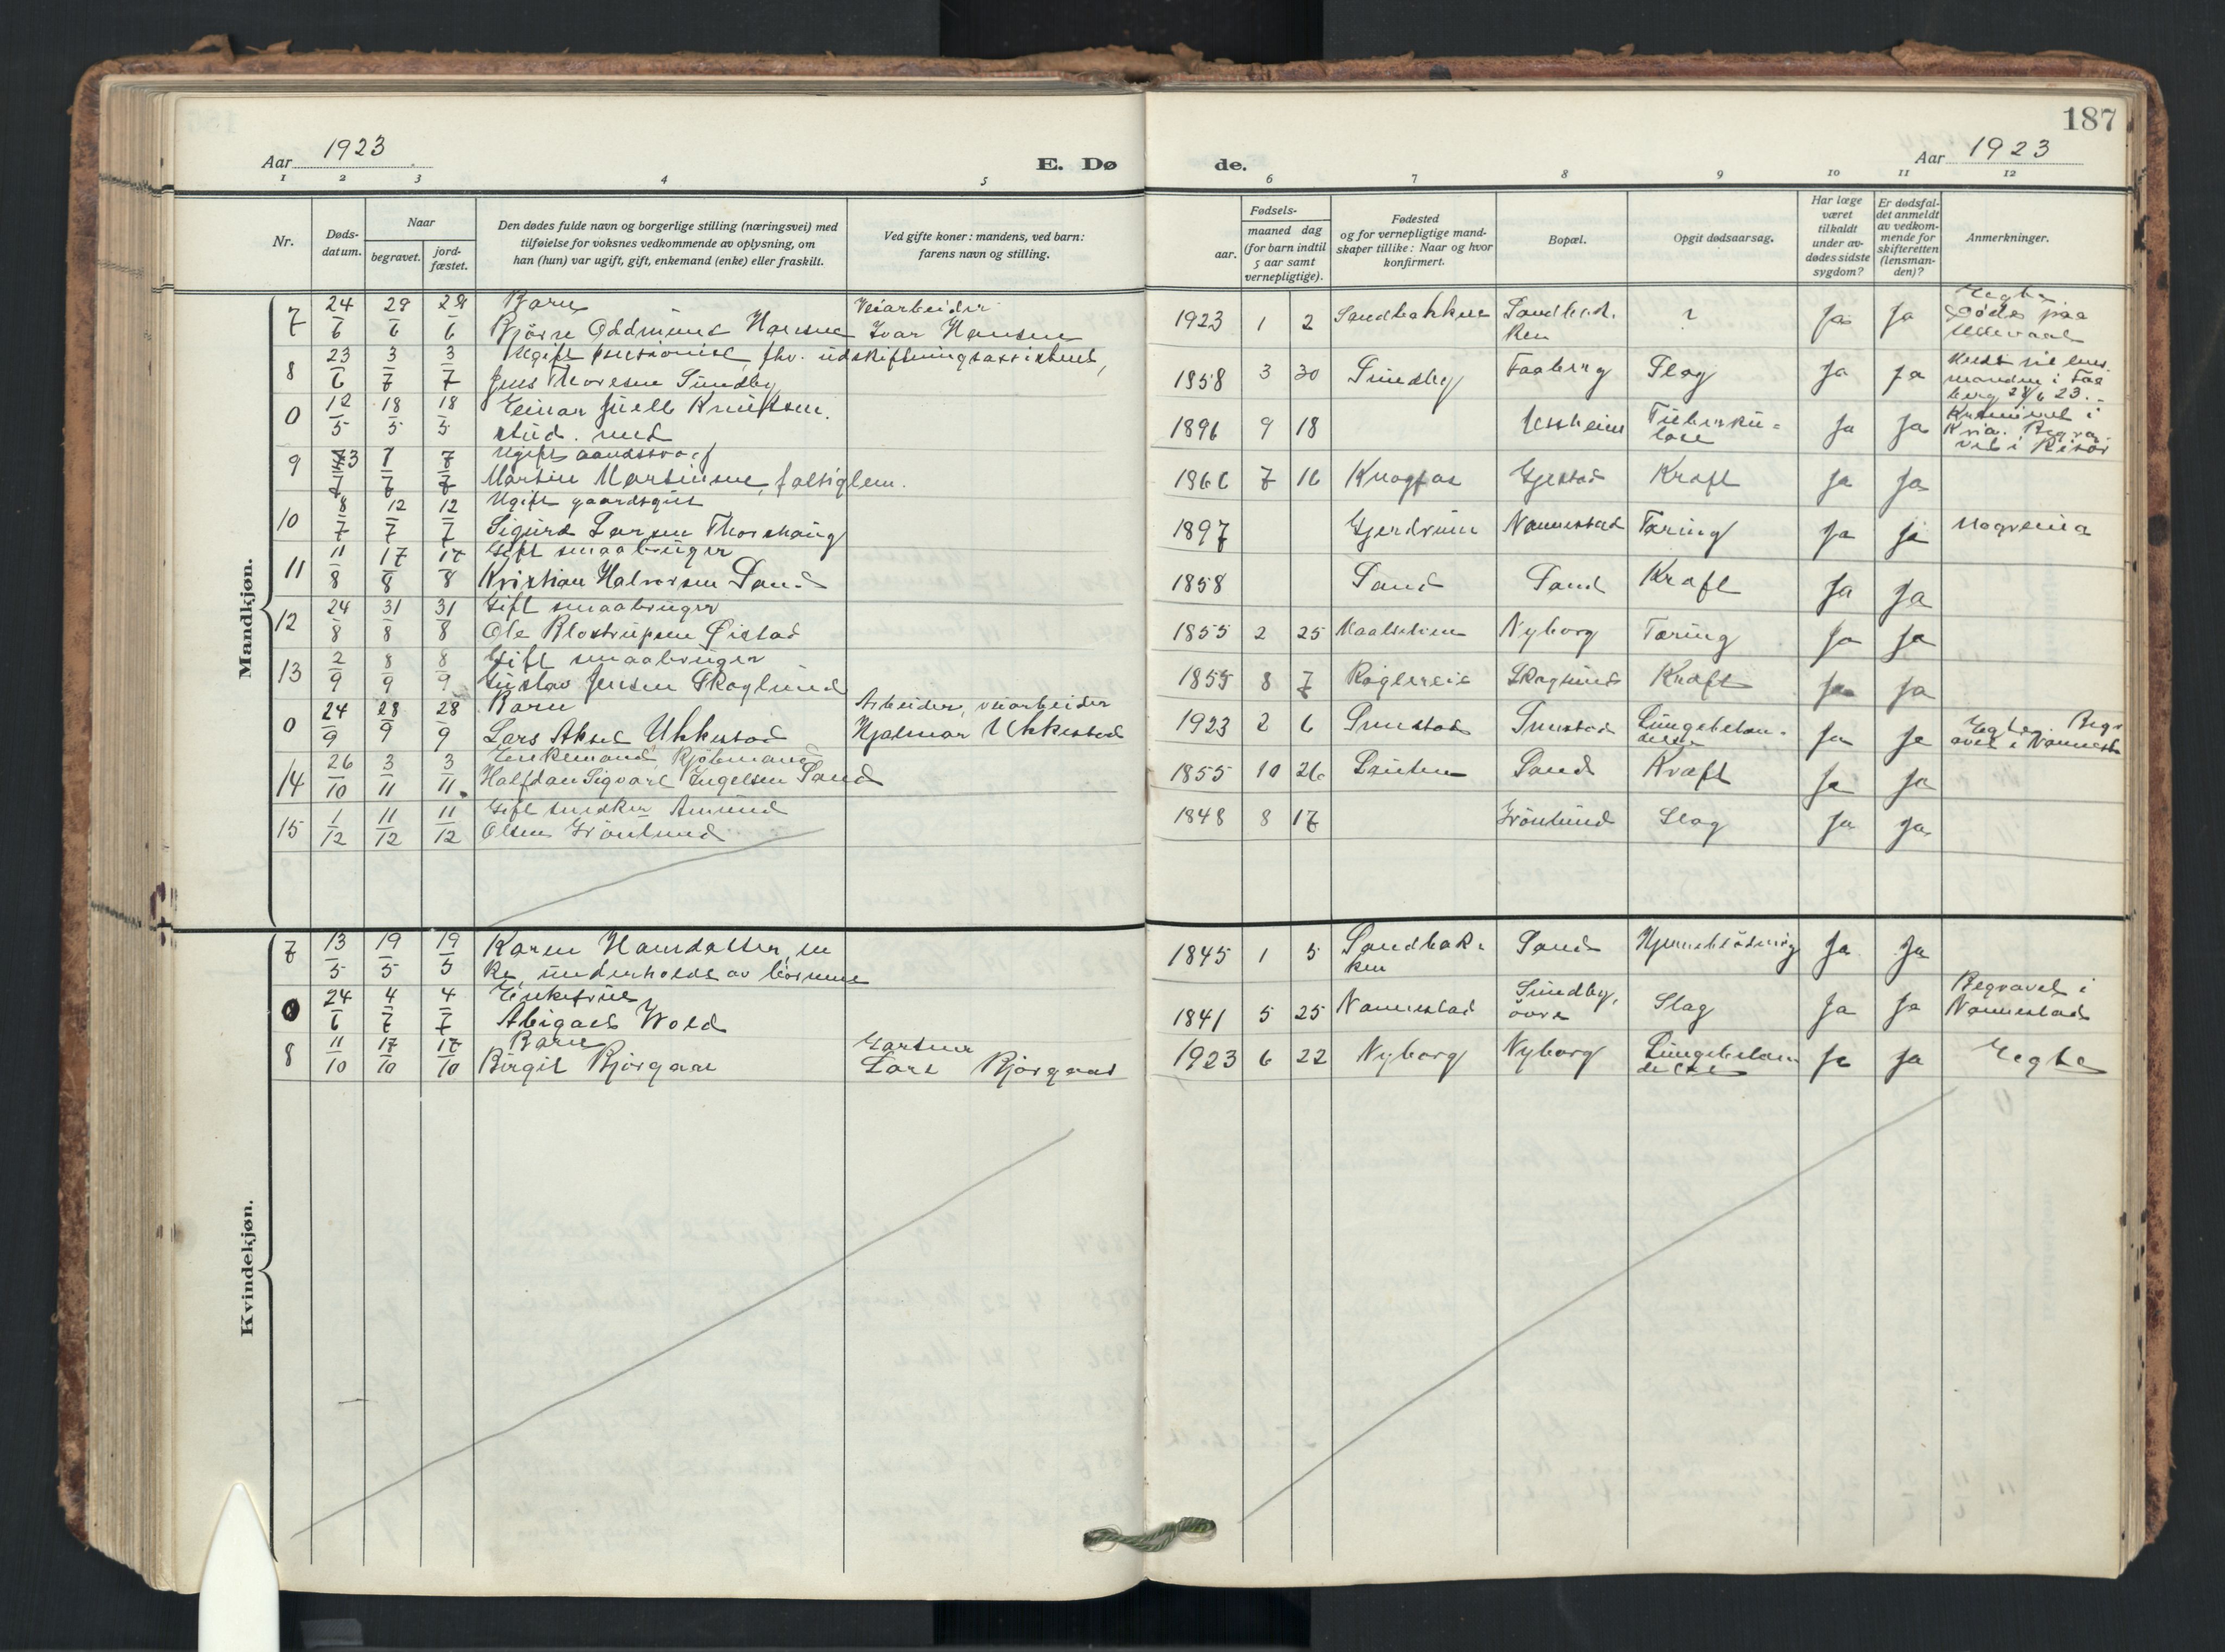 187
Aar 1923
E. Dø
de.
Aar 1923
1 2 3 4 5 6 7 8 9 10 11 12
Nr.
Døds-
datum.
Naar
begravet.
jord-
fæstet.
Den dødes fulde navn og borgerlige stilling (næringsvei) med
tilføielse for voksnes vedkommende av oplysning, om
han (hun) var ugift, gift, enkemand (enke) eller fraskilt.
Ved gifte koner: mandens, ved barn:
farens navn og stilling.
Fødsels-
aar.
maaned dag
(for barn indtil
5 aar samt
vernepligtige).
Fødested
og for vernepligtige mand-
skaper tillike: Naar og hvor
konfirmert.
Bopæl.
Opgit dødsaarsag.
Har læge
været
tilkaldt
under av-
dødes sidste
sygdom?
Er dødsfal-
det anmeldt
av vedkom-
mende for
skifteretten
(lensman-
den)?
Anmerkninger.
Mandkjøn.
7 24/6 29/6 29/6 Barn Veiarbeider
Bjørn Oddmund Hansen Ivar Hansen 1923 1 2 Sandbakken Sandbak-
ken ? Ja Ja Uegte
Døde paa
Ullevaal
8 23/6 3/7 3/7 Ugift pensionist, fhv. udskiftningsassistent,
Jens Thoresen Sundby 1858 3 30 Sundby Faaberg Slag Ja Ja
manden i Faa
berg 28/6 23.
0 12/5 18/5 18/5 Einar Juell Knudsen.
stud. med 1896 9 18 Jessheim Tuberku-
lose Ja Ja
Kria. Begra-
vet i Risör
9 3/7 7/7 7/7 Ugift aandssvag
Martin Martinsen, fatiglem. 1866 7 16 Gjestad Kræft Ja Ja
10 8/7 12/7 12/7 Ugift gaardsgut
Sigurd Larsen Thorshaug 1897 Gjerdrum Nannestad Tæring Ja Ja
11 11/8 17/8 17/8 Gift smaabruger
Kristian Halvorsen Sand 1858 Sand Sand Kræft Ja Ja
12 24/8 31/8 31/8 Gift smaabruger
Ole Klostrupsen Øistad 1855 2 25 Nyborg Tæring Ja Ja
13 2/9 8/9 8/9 Gift smaabruger
Gustav Jensen Skoglund 1855 8 7 Skoglund Kræft Ja Ja
0 24/9 28/9 28/9 Barn Arbeider, veiarbeider
Lars Aksel Ukkestad Hjalmar Ukkestad 1923 2 6 Lungebetæn-
delse Ja Ja Uegte. Begr
avet i Nannest
14 26/10 3/11 3/11. Enkemand, Kjøbmand
Halfdan Sigvart Engelsen Sand 1855 10 26 Sand Kræft Ja Ja
15 1/12 11/12 11/12 Gift snedker Amund
Olsen Grönlund 1848 8 17 Grönlund Slag Ja Ja
Kvindekjøn.
7 13/5 19/5 19/5 Karen Hansdatter, en
ke underholdt av börnene 1845 1 5 Sandbak-
ken Sand Hjerneblödning Ja Ja
0 24/6 4/7 4/7 Enkefrue
Abigael Wold 1841 5 25 Nannestad Sundby,
övre Slag Ja Ja Begravet i
Nannestad
8 11/10 17/10 17/10 Barn Gartner
Birgit Bjørgaas Lars Bjørgaas 1923 6 22 Nyborg Nyborg Lungebetæn
delse Ja Ja Uegte